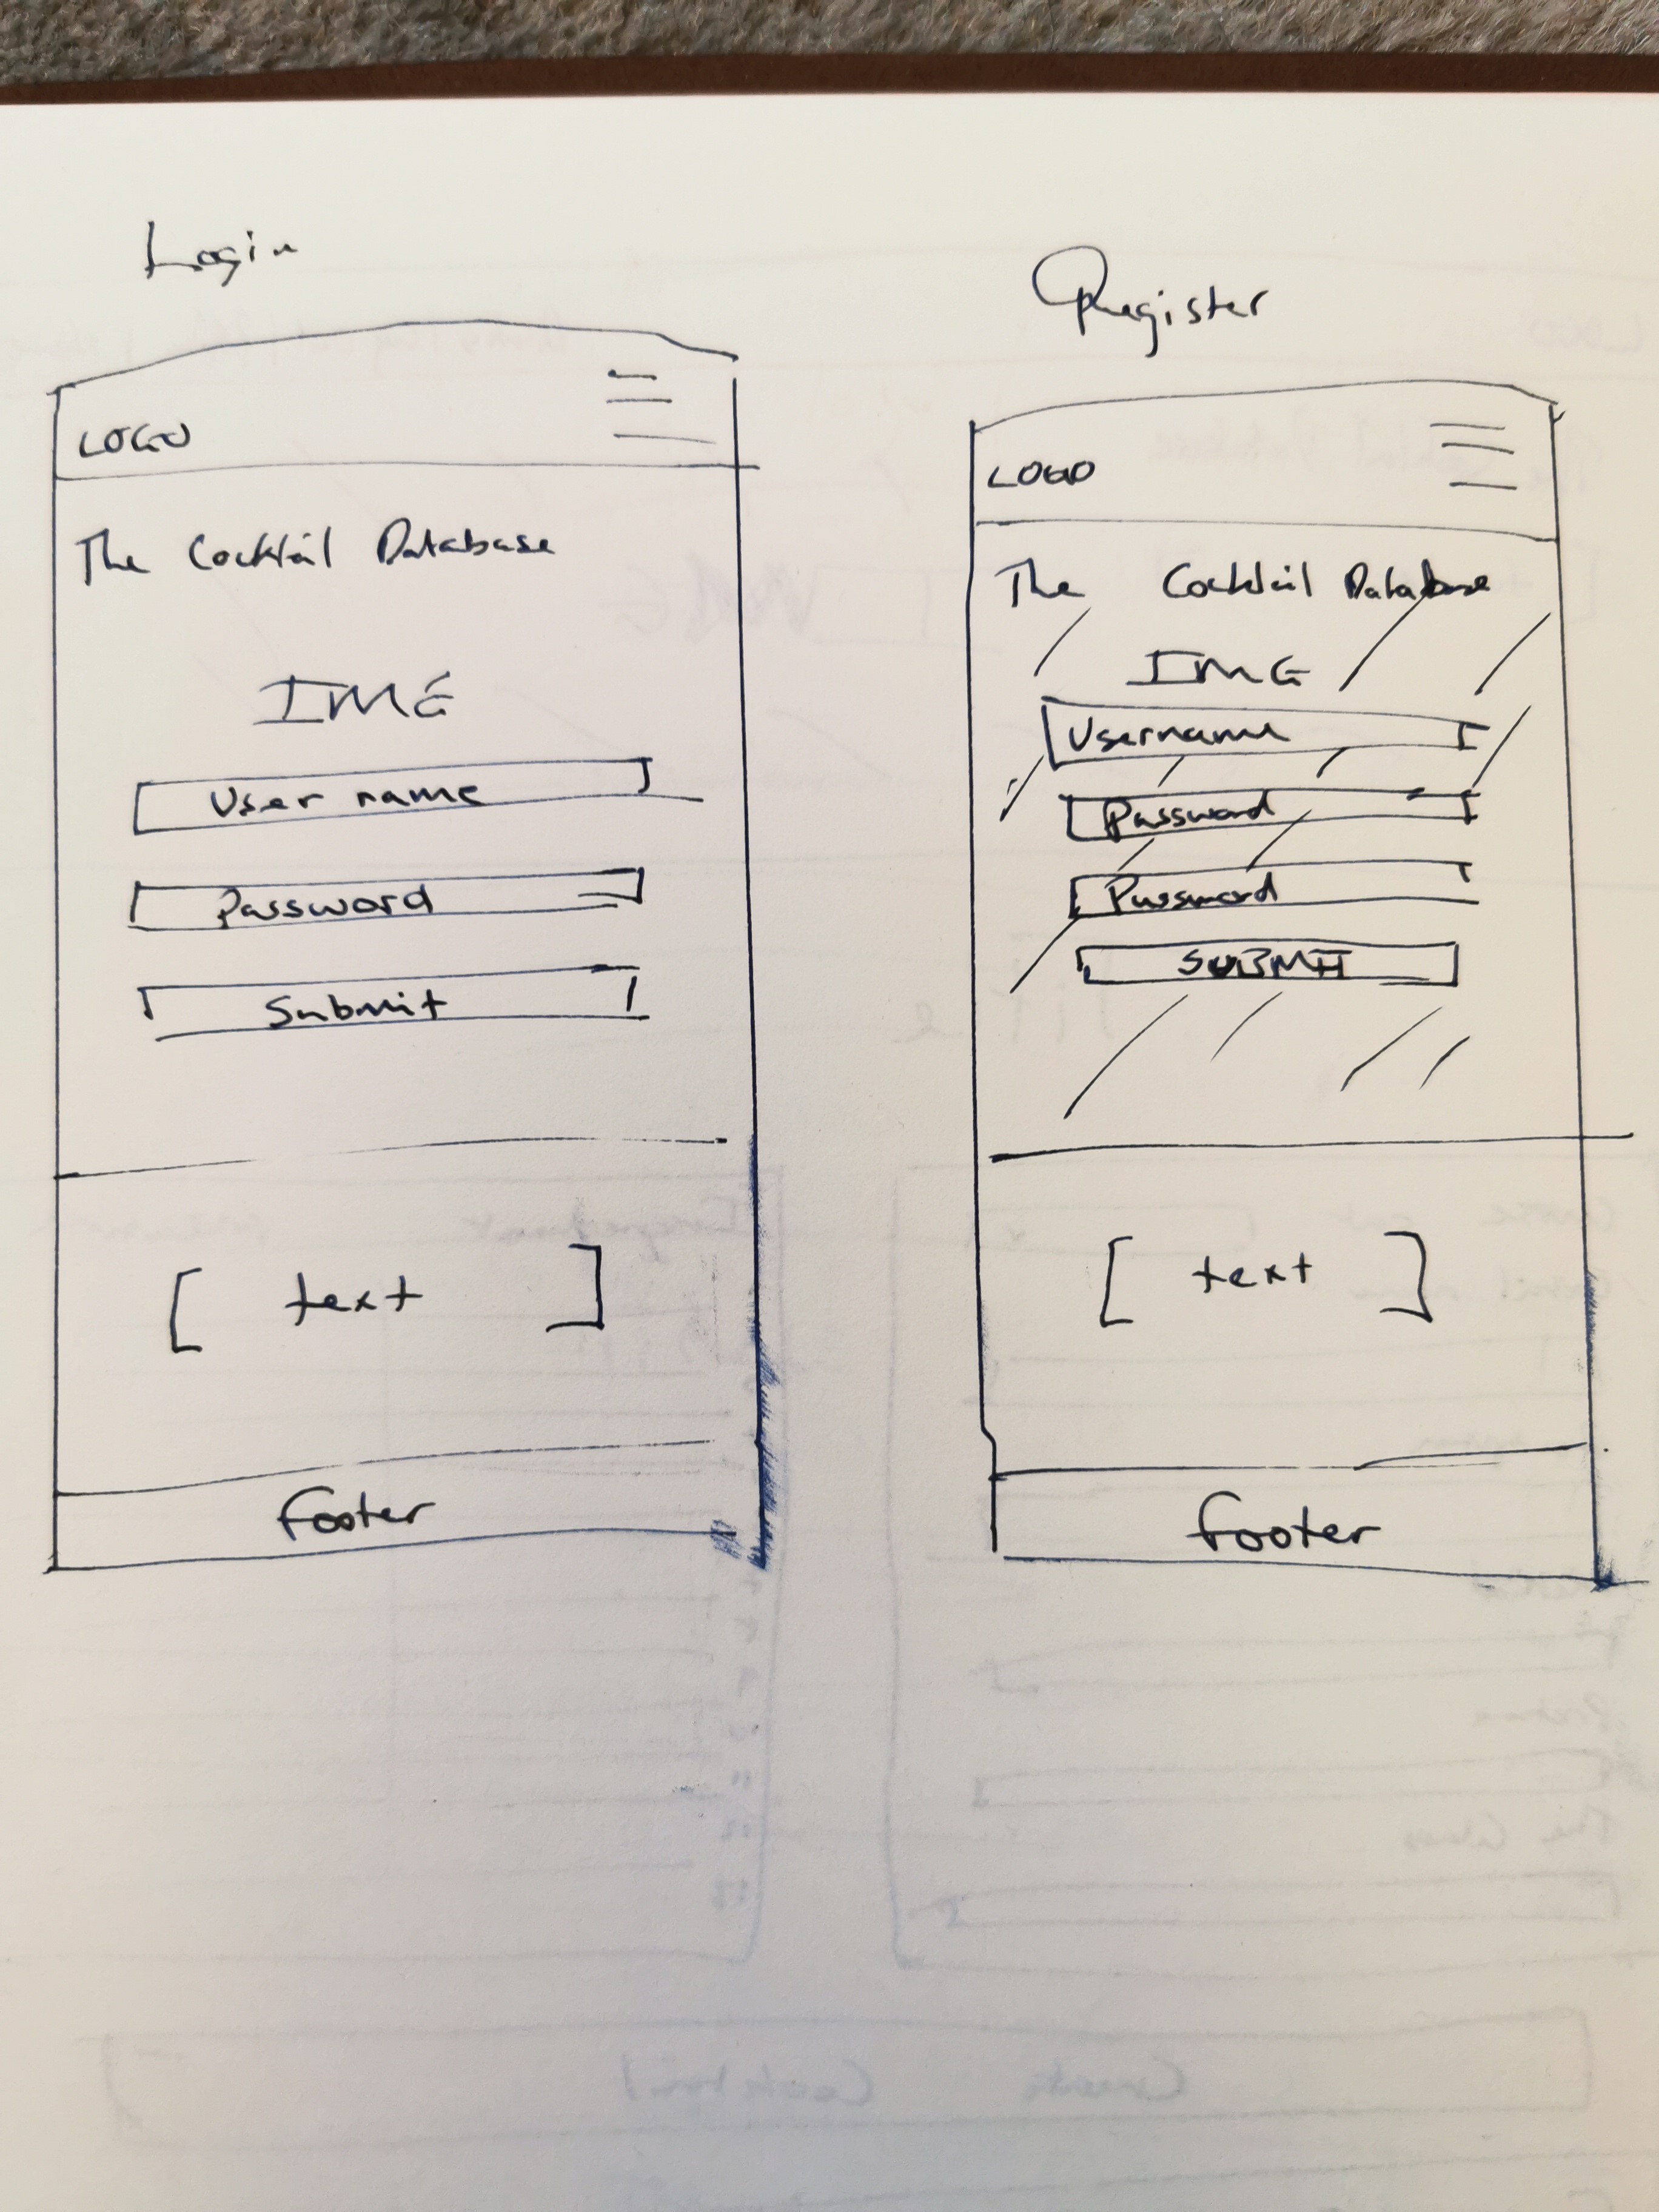 Login
LOGO
The Cocktail Database
IMG
User name
Password
Submit
[ text ]
footer
Register
LOGO
The Cocktail Database
IMG
Username
Password
Password
SUBMIT
[ text ]
footer